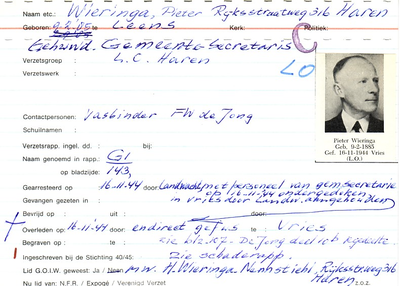 Naam etc.: Wieringa, Pieter Rijksstraatweg 316 Haren
Geboren: 9-2-85 te Leens Kerk: Politiek:
Gehuwd. Gemeente-Secretaris
Verzetsgroep : L.C. Haren
Verzetswerk : LO
Contactpersonen: Vasbinder FW de Jong
Schuilnaam :
Verzetsrapp. ingel. dd. : bij:
Naam genoemd in rapp.: G1
op bladzijde: 143,
Gearresteerd op : 16-11-44 door: Landwacht, met personeel van gem secretarie
op 16-11-44 ondergedoken
Gevangen gezeten in : in Vries door Landw. aangehouden
Bevrijd op : uit : door:
Overleden op : 16-11-44 door: en direct gefus te Vries
Begraven op : te :
ingeschreven bij de Stichting 40/45: Zie schaderapp.
Lid G.O.I.W. geweest: Ja / Neen mw. H. Wieringa Nanhstiehl, Rijksstraatweg 316
Haren
Nu lid van: N.F.R. / Expogé / Verenigd Verzet Z.O.Z.
Pieter Wieringa
Geb. 9-2-1885
Gef. 16-11-1944 Vries
(L.O.)